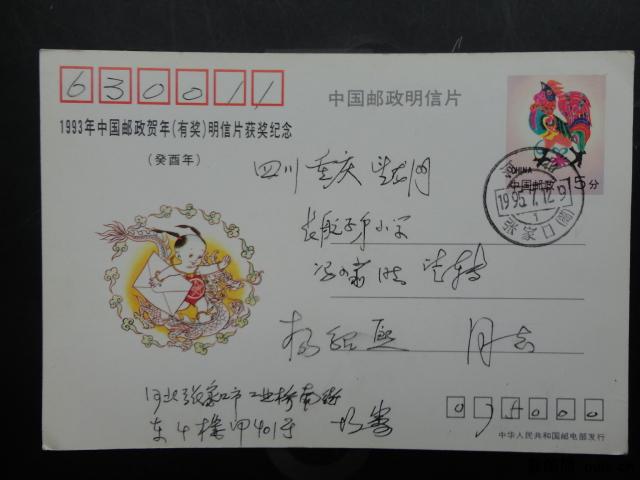 630011
中国邮政明信片
1993年中国邮政贺年(有奖)明信片获奖纪念
(癸酉年)
CHINA
中国邮政 15分
1995.7.12.9
1
张家口
四川重庆
长航子弟小学
杨绍熙 同志
河北张家口市工业桥南街
东4楼甲401号
075000
中华人民共和国邮电部发行